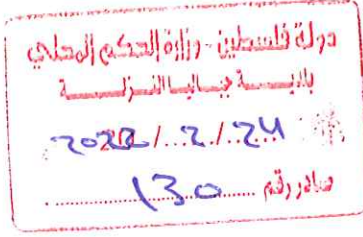 دولة فلسطين - وزارة الحكم المحلي
بلديـــة جبـاليـا النـــزلـــــة
2022/2/24
صادر رقم 130